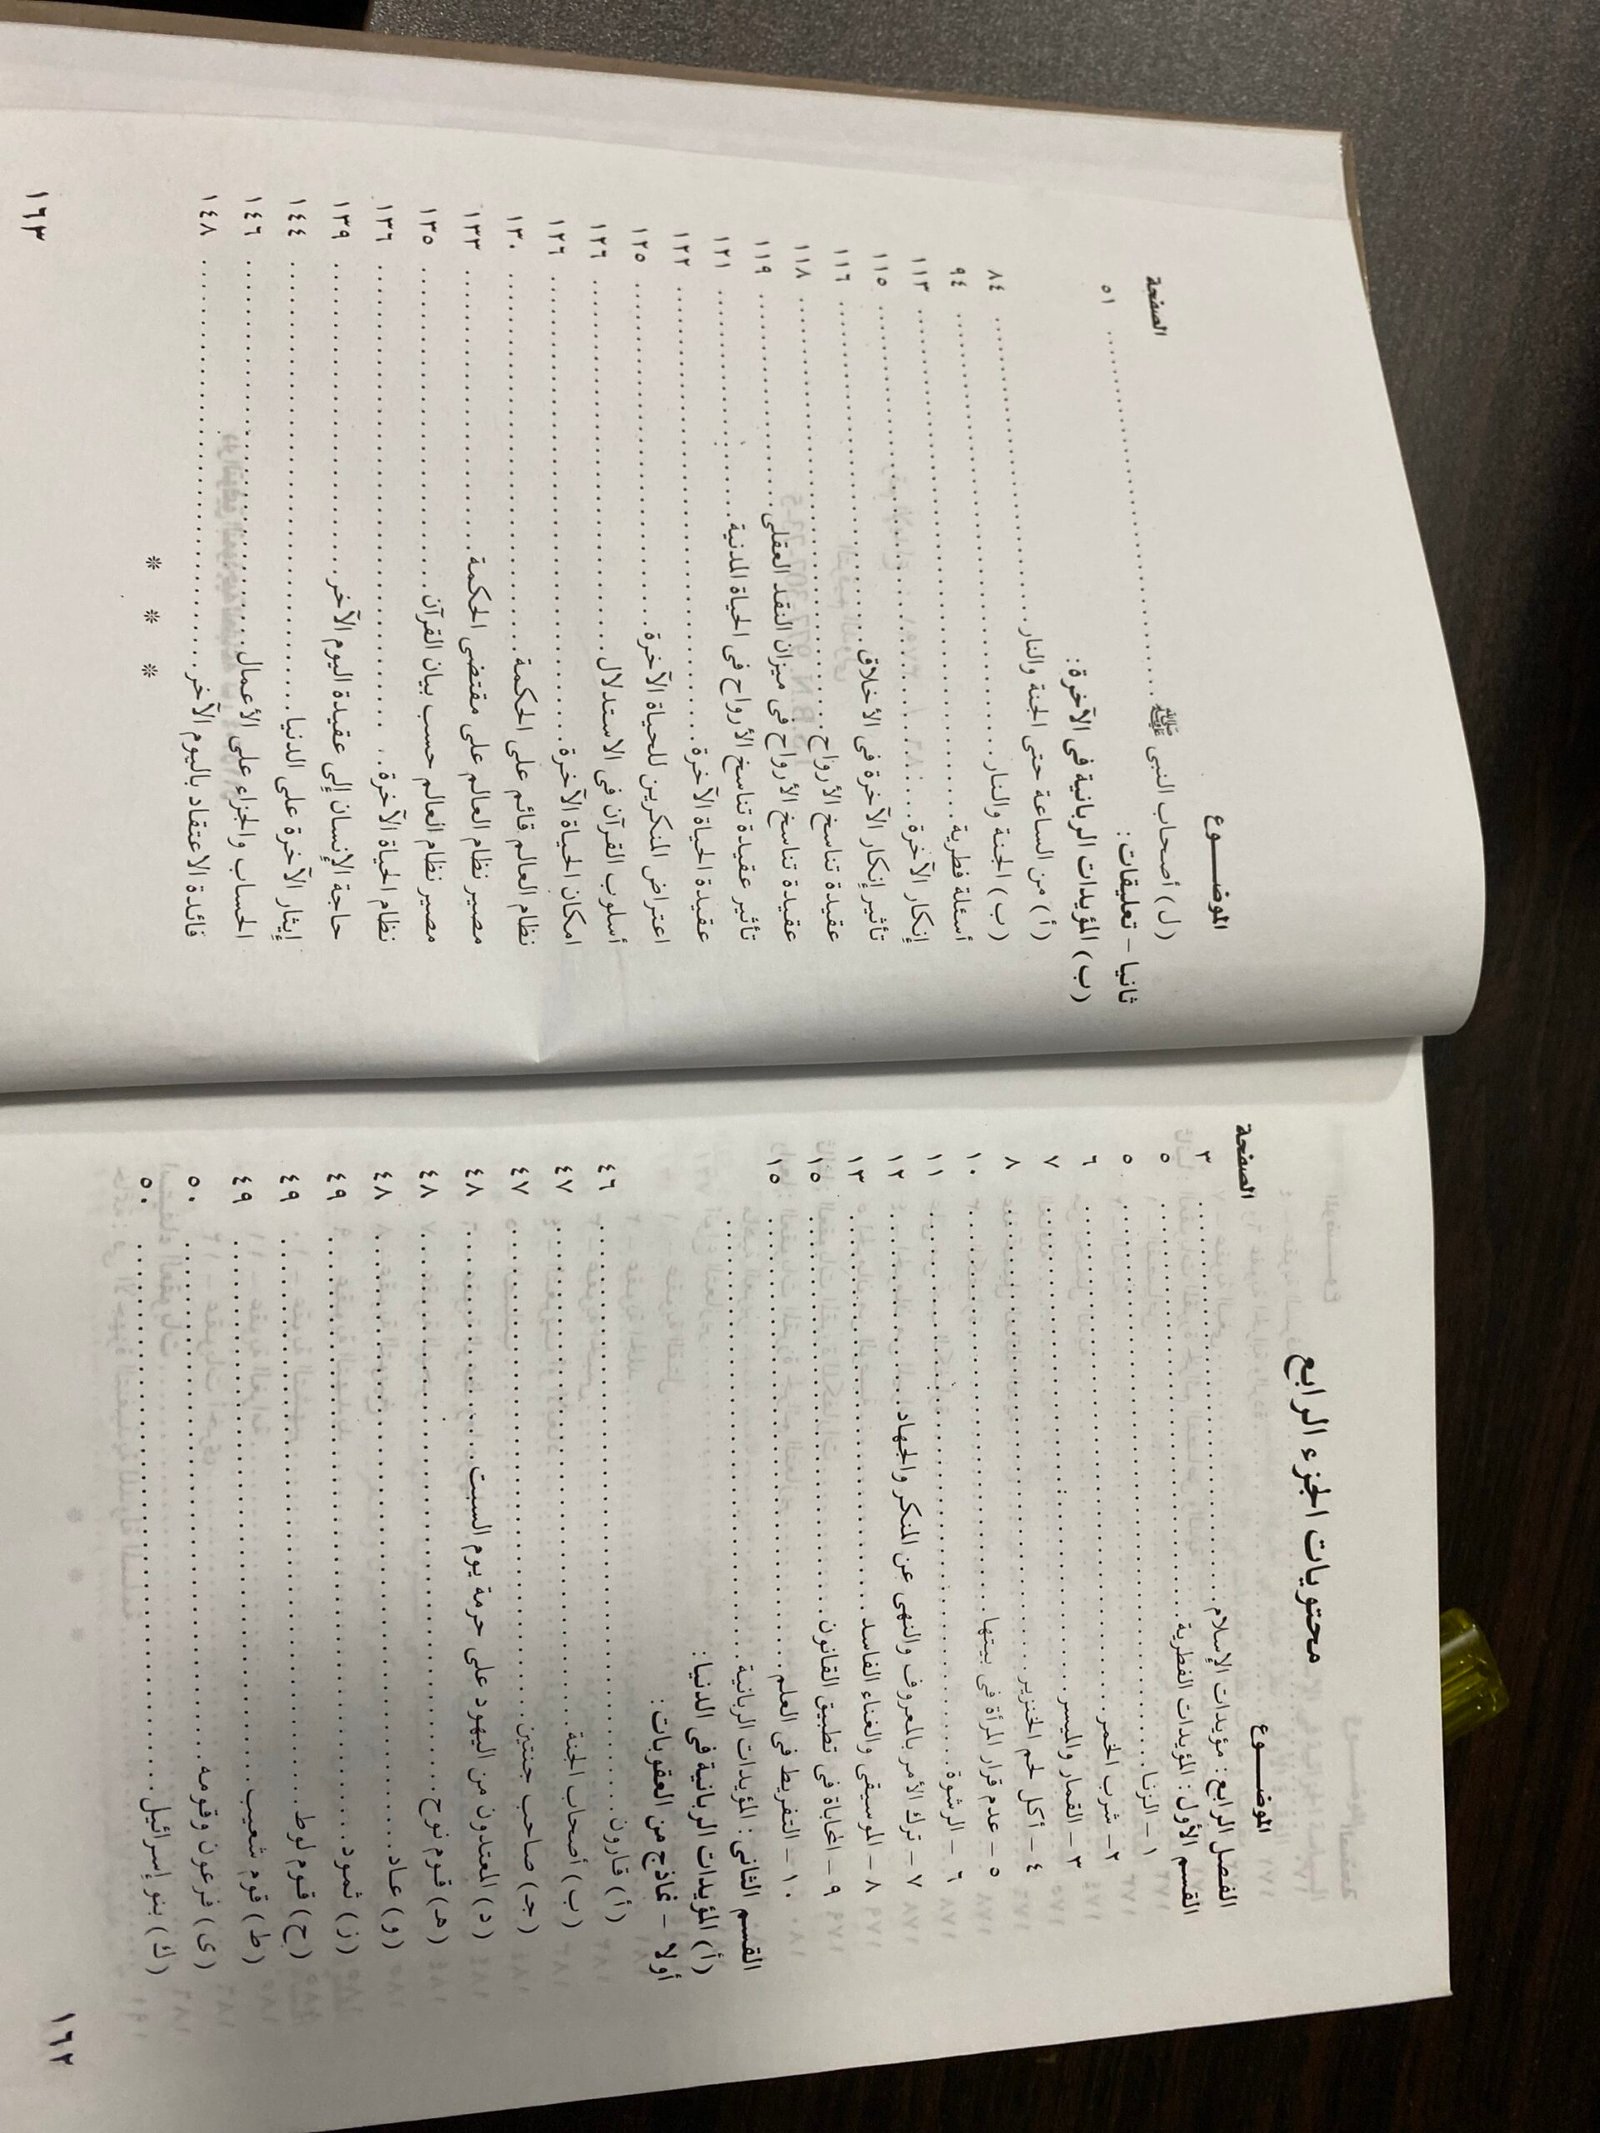 محتويات الجزء الرابع
الموضـــوع الصفحة
الفصل الرابع : مؤيدات الإسلام ٣
القسم الأول : المؤيدات الفطرية ٥
١ – الزنا ٥
٢ – شرب الخمر ٦
٣ – القمار والميسر ٧
٤ – أكل لحم الخنزير ٨
٥ – عدم قرار المرأة فى بيتها ١٠
٦ – الرشوة ١١
٧ – ترك الأمر بالمعروف والنهى عن المنكر والجهاد ١٢
٨ – الموسيقى والغناء الفاسد ١٣
٩ – المحاباة فى تطبيق القانون ١٥
١٠ – التفريط فى العلم ١٥
القسم الثانى : المؤيدات الربانية
(أ) المؤيدات الربانية فى الدنيا :
أولا – نماذج من العقوبات :
(أ) قارون ٤٦
(ب) أصحاب الجنة ٤٧
(جـ) صاحب جنتين ٤٧
(د) المعتدون من اليهود على حرمة يوم السبت ٤٨
(هـ) قوم نوح ٤٨
(و) عاد ٤٨
(ز) ثمود ٤٩
(ح) قوم لوط ٤٩
(ط) قوم شعيب ٤٩
(ى) فرعون وقومه ٥٠
(ك) بنو إسرائيل ٥٠
١٦٢
الموضـــوع الصفحة
(ل) أصحاب النبى ﷺ ٥١
ثانيا – تعليقات :
(ب) المؤيدات الربانية فى الآخرة :
(أ) من الساعة حتى الجنة والنار ٨٤
(ب) الجنة والنار ٩٤
أسئلة فطرية ١١٣
إنكار الآخرة ١١٥
تأثير إنكار الآخرة فى الأخلاق ١١٦
عقيدة تناسخ الأرواح ١١٨
عقيدة تناسخ الأرواح فى ميزان النقد العقلى ١١٩
تأثير عقيدة تناسخ الأرواح فى الحياة المدنية ١٢١
عقيدة الحياة الآخرة ١٢٢
اعتراض المنكرين للحياة الآخرة ١٢٥
أسلوب القرآن فى الاستدلال ١٢٦
امكان الحياة الآخرة ١٢٦
نظام العالم قائم على الحكمة ١٣٠
مصير نظام العالم على مقتضى الحكمة ١٣٣
مصير نظام العالم حسب بيان القرآن ١٣٥
نظام الحياة الآخرة ١٣٦
حاجة الإنسان إلى عقيدة اليوم الآخر ١٣٩
إيثار الآخرة على الدنيا ١٤٤
الحساب والجزاء على الأعمال ١٤٦
فائدة الاعتقاد باليوم الآخر ١٤٨
* * *
١٦٣